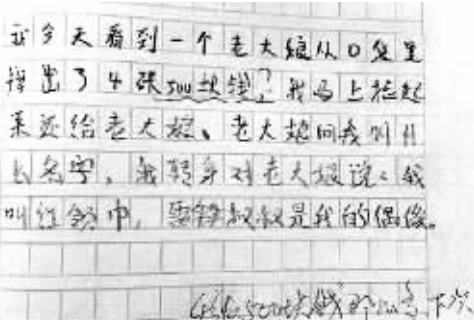 我今天看到一个老大娘从口袋里
掉出了4张500块钱,我马上捡起
来还给老大娘、老大娘问我叫什
么名字,我转身对老大娘说:我
叫红领巾,雷锋叔叔是我的偶像。
500块钱 下次